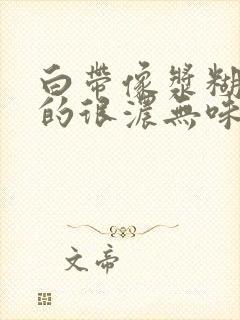 白帶像漿糊
的很濃無味
文帝